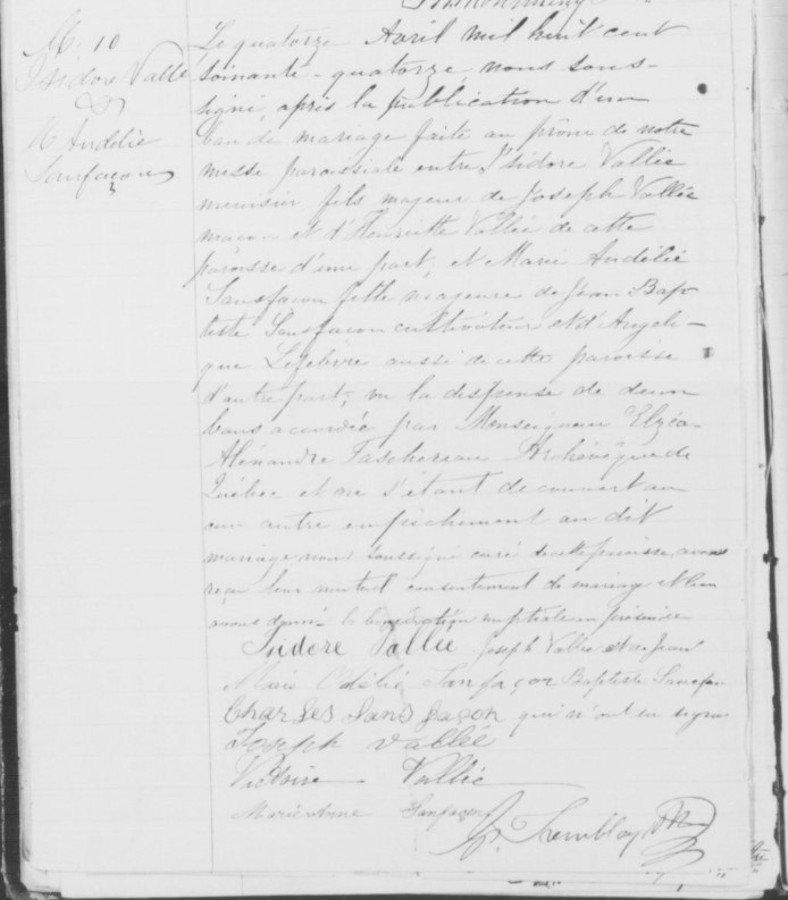 M. 10
Isidore Vallé
&
M Andélie
Sanfaçon
Le quatorze Avril mil huit cent
soixante-quatorze, nous sous-
signé, après la publication d'un
ban de mariage faite au prône de notre
messe paroissiale entre Isidore Vallée
menuisier fils majeur de Joseph Vallée
maçon et d'Henriette Vallée de cette
paroisse d'une part, et Marie Andélie
Sansfaçon fille majeure de Jean Bap-
tiste Sansfaçon cultivateur et d'Angéli-
que Lefebvre aussi de cette paroisse
d'autre part; vu la dispense de deux
bans accordée par Monseigneur Elzéa-
Alexandre Taschereau Archevêque de
Québec et ne s'étant découvert au-
cun autre empêchement au dit
mariage nous soussigné curé de cette paroisse, avons
reçu leur mutuel consentement de mariage et leur
avons donné la bénédiction nuptiale en présence
Isidore Vallée Joseph Vallée et de Jean
Marie Odélie Sanfaçon Baptiste Sansfaçon
Charles Sansfaçon qui n'ont su signer
Joseph Vallée
Victoire Vallée
Marie Anne Sanfaçon
Tremblay Ptre